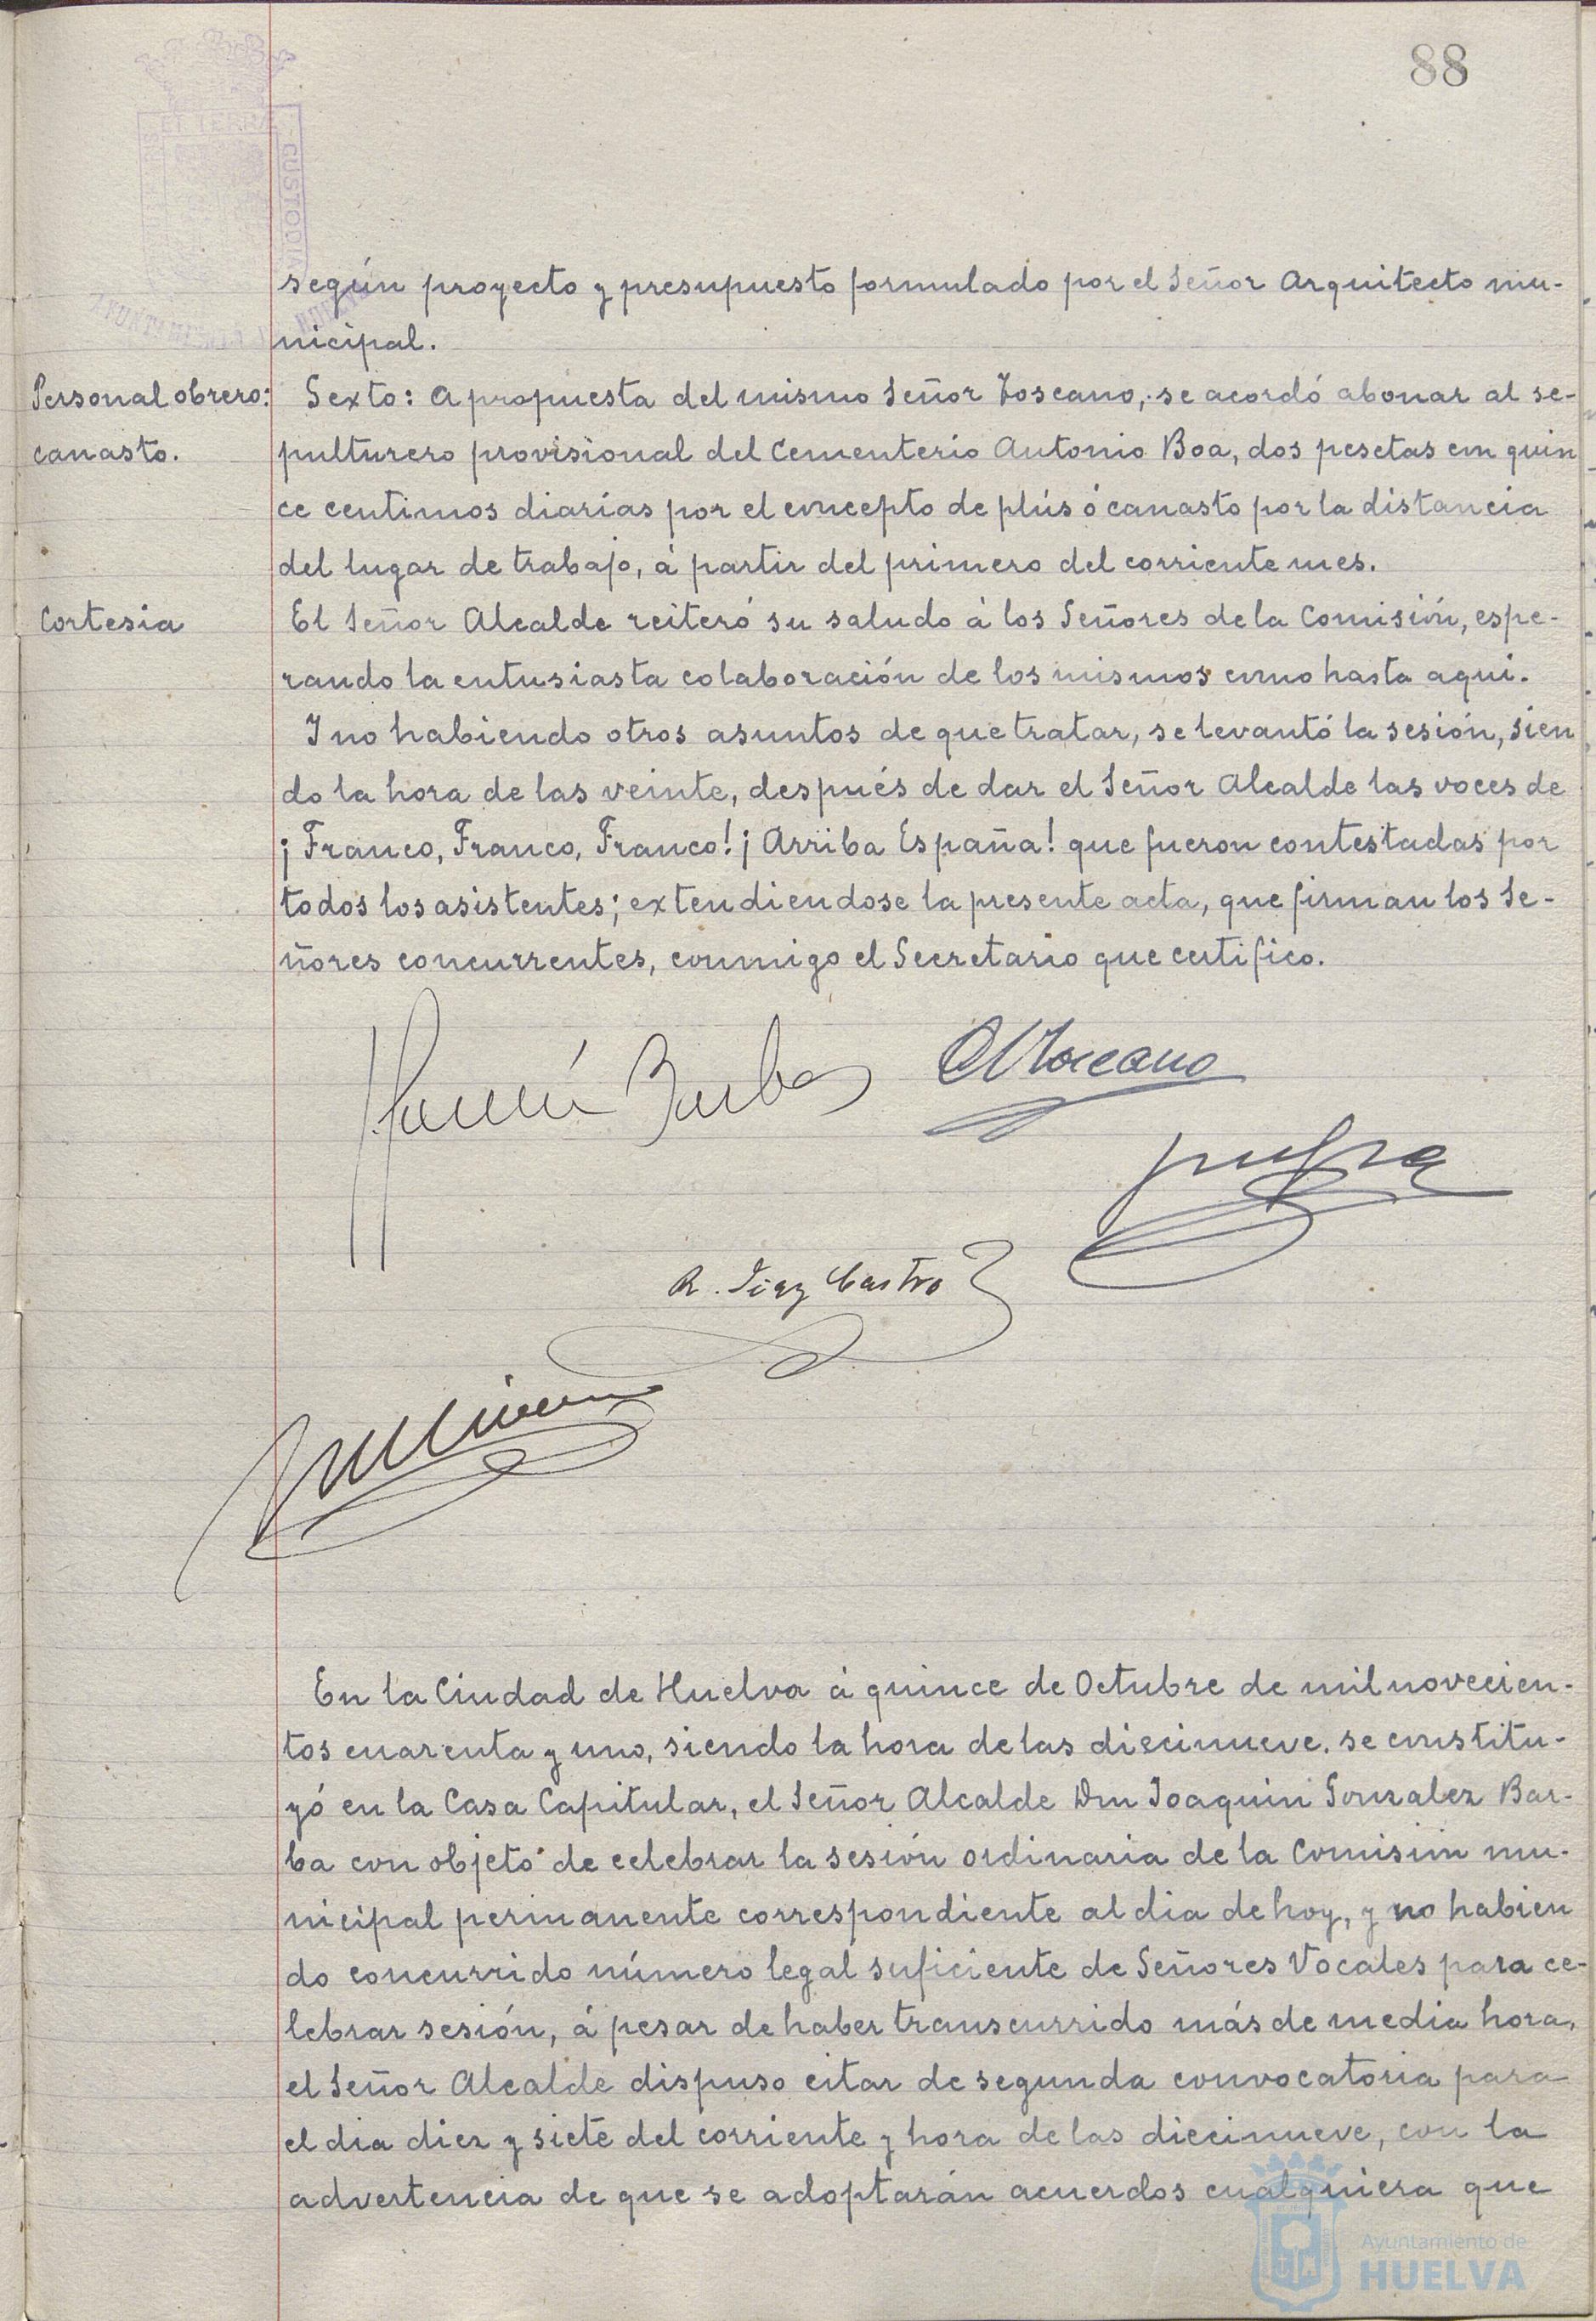 88
ET TERRÆ
CUSTODIA
AYUNTAMIENTO
según proyecto y presupuesto formulado por el Señor Arquitecto mu-
nicipal.
Personal obrero: Sexto: A propuesta del mismo Señor Toscano, se acordó abonar al se-
canasto. pulturero provisional del Cementerio Antonio Boa, dos pesetas con quin
ce centimos diarias por el concepto de plús ó canasto por la distancia
del lugar de trabajo, á partir del primero del corriente mes.
Cortesia El Señor Alcalde reiteró su saludo á los Señores de la Comisión, espe-
rando la entusiasta colaboración de los mismos como hasta aqui.
Y no habiendo otros asuntos de que tratar, se levantó la sesión, sien
do la hora de las veinte, después de dar el Señor Alcalde las voces de
¡Franco, Franco, Franco! ¡Arriba España! que fueron contestadas por
todos los asistentes; extendiendose la presente acta, que firman los Se-
ñores concurrentes, conmigo el Secretario que certifico.
Barba Toscano
R. Diaz Castro
En la Ciudad de Huelva á quince de Octubre de mil novecien-
tos cuarenta y uno, siendo la hora de las diecinueve, se constitu-
yó en la Casa Capitular, el Señor Alcalde Don Joaquin Gonzalez Bar-
ba con objeto de celebrar la sesión ordinaria de la Comisión mu-
nicipal permanente correspondiente al dia de hoy, y no habien
do concurrido número legal suficiente de Señores Vocales para ce-
lebrar sesión, á pesar de haber transcurrido más de media hora,
el Señor Alcalde dispuso citar de segunda convocatoria para
el dia diez y siete del corriente y hora de las diecinueve, con la
advertencia de que se adoptarán acuerdos cualquiera que
Ayuntamiento de
HUELVA